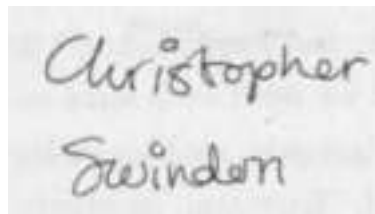 Christopher
Swindon